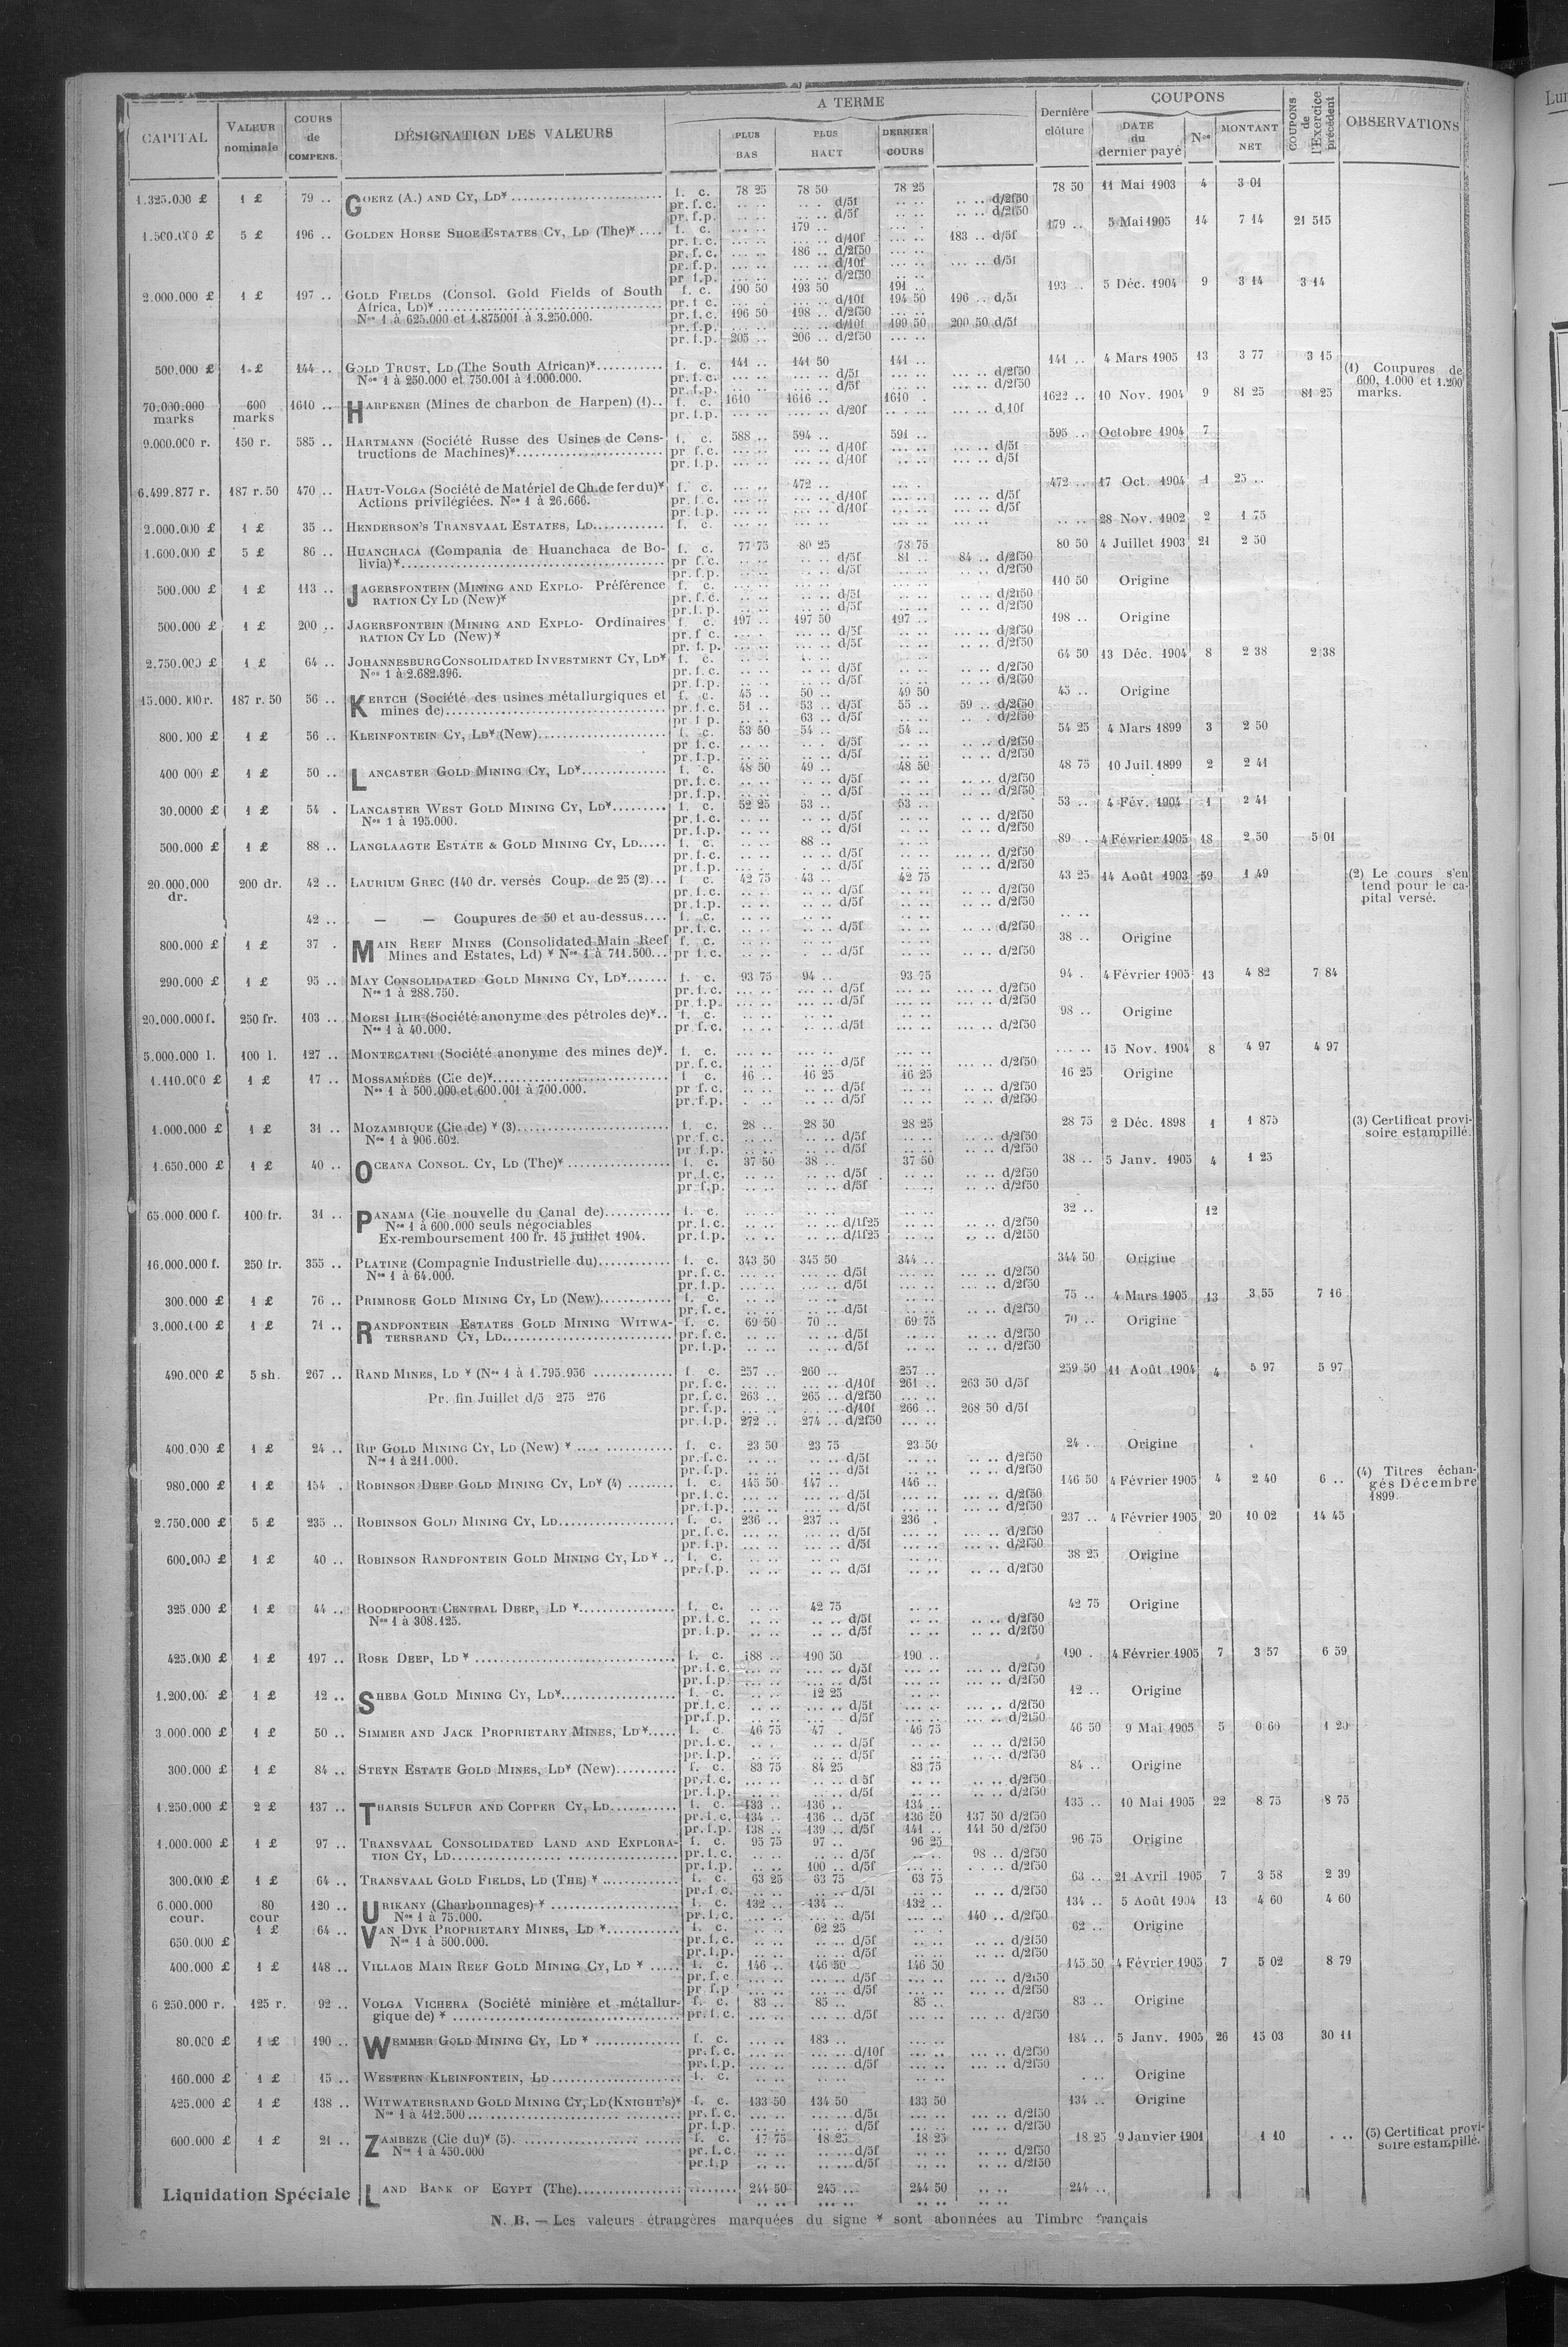 CAPITAL | VALEUR nominale | COURS de COMPENS. | DÉSIGNATION DES VALEURS | A TERME | PLUS BAS | PLUS HAUT | DERNIER COURS | Dernière clôture | COUPONS | DATE du dernier payé | Nos | MONTANT NET | COUPONS de l'Exercice précédent | OBSERVATIONS
1.325.000 £ 1 £ 79 .. GOERZ (A.) AND CY, LD* f. c. 78 25 78 50 78 25 78 50 11 Mai 1903 4 3 01
pr. f. c. d/5f d/2f50
pr. f. p. d/5f d/2f50
1.500.000 £ 5 £ 196 .. GOLDEN HORSE SHOE ESTATES CY, LD (The)* f. c. 179 .. 179 .. 5 Mai 1905 14 7 14 21 515
pr. f. c. d/10f 183 .. d/5f
pr. f. c. 186 .. d/2f50
pr. f. p. d/10f d/5f
pr. f. p. d/2f50
2.000.000 £ 1 £ 197 .. GOLD FIELDS (Consol. Gold Fields of South f. c. 190 50 193 50 191 .. 193 .. 5 Déc. 1904 9 3 14 3 14
Africa, LD)* pr. f. c. d/10f 194 50 196 .. d/5f
Nos 1 à 625.000 et 1.875001 à 3.250.000. pr. f. c. 196 50 198 .. d/2f50
pr. f. p. d/10f 199 50 200 50 d/5f
pr. f. p. 205 .. 206 .. d/2f50
500.000 £ 1 £ 144 .. GOLD TRUST, LD (The South African)* f. c. 141 .. 141 50 141 .. 141 .. 4 Mars 1905 13 3 77 3 15 (1) Coupures de
Nos 1 à 250.000 et 750.001 à 1.000.000. pr. f. c. d/5f d/2f50 600, 1.000 et 1.200
pr. f. p. d/5f d/2f50 marks.
70.000.000 marks 600 marks 1610 .. HARPENER (Mines de charbon de Harpen) (1) f. c. 1610 1616 .. 1610 . 1622 .. 10 Nov. 1904 9 81 25 81 25
pr. f. p. d/20f d.10f
9.000.000 r. 150 r. 585 .. HARTMANN (Société Russe des Usines de Cons- f. c. 588 .. 594 .. 591 .. 595 .. Octobre 1904 7
tructions de Machines)* pr f. c. d/10f d/5f
pr. f. p. d/10f d/5f
6.499.877 r. 187 r. 50 470 .. HAUT-VOLGA (Société de Matériel de Ch. de fer du)* f. c. 472 .. 472 .. 17 Oct. 1904 1 25 ..
Actions privilégiées. Nos 1 à 26.666. pr. f. c. d/10f d/5f
pr. f. p. d/10f d/5f
2.000.000 £ 1 £ 35 .. HENDERSON'S TRANSVAAL ESTATES, LD f. c. 28 Nov. 1902 2 1 75
1.600.000 £ 5 £ 86 .. HUANCHACA (Compania de Huanchaca de Bo- f. c. 77 75 80 25 78 75 80 50 4 Juillet 1903 21 2 50
livia)* pr f. c. d/5f 81 .. 84 .. d/2f50
pr. f. p. d/5f d/2f50
500.000 £ 1 £ 113 .. JAGERSFONTEIN (MINING AND EXPLO- Préférence f. c. 110 50 Origine
RATION CY LD (New)* pr. f. c. d/5f d/2f50
pr. f. p. d/5f d/2f50
500.000 £ 1 £ 200 .. JAGERSFONTEIN (MINING AND EXPLO- Ordinaires f. c. 197 .. 197 50 197 .. 198 .. Origine
RATION CY LD (New)* pr. f c. d/5f d/2f50
pr. f. p. d/5f d/2f50
2.750.000 £ 1 £ 64 .. JOHANNESBURG CONSOLIDATED INVESTMENT CY, LD* f. c. 64 50 13 Déc. 1904 8 2 38 2 38
Nos 1 à 2.682.396. pr. f. c. d/5f d/2f50
pr. f. p. d/5f d/2f50
15.000.000 r. 187 r. 50 56 .. KERTCH (Société des usines métallurgiques et f. c. 45 .. 50 .. 49 50 45 .. Origine
mines de) pr. f. c. 51 .. 53 .. d/5f 55 .. 59 .. d/2f50
pr f p. 63 .. d/5f d/2f50
800.000 £ 1 £ 56 .. KLEINFONTEIN CY, LD* (New) f. c. 53 50 54 .. 54 .. 54 25 4 Mars 1899 3 2 50
pr f. c. d/5f d/2f50
pr. f. p. d/5f d/2f50
400 000 £ 1 £ 50 .. LANCASTER GOLD MINING CY, LD* f. c. 48 50 49 .. 48 50 48 75 10 Juil. 1899 2 2 41
pr. f. c. d/5f d/2f50
pr. f. p. d/5f d/2f50
30.0000 £ 1 £ 54 . LANCASTER WEST GOLD MINING CY, LD* f. c. 52 25 53 .. 53 .. 53 .. 4 Fév. 1904 1 2 41
Nos 1 à 195.000. pr. f. c. d/5f d/2f50
pr. f. p. d/5f d/2f50
500.000 £ 1 £ 88 .. LANGLAAGTE ESTATE & GOLD MINING CY, LD f. c. 88 .. 89 . 4 Février 1905 18 2 50 5 01
pr. f. c. d/5f d/2f50
pr. f. p. d/5f d/2f50
20.000.000 dr. 200 dr. 42 .. LAURIUM GREC (140 dr. versés Coup. de 25 (2) f c. 42 75 43 .. 42 75 43 25 14 Août 1903 59 1 49 (2) Le cours s'en
pr. f. c. d/5f d/2f50 tend pour le ca-
pr. f. p. d/5f d/2f50 pital versé.
42 .. — — Coupures de 50 et au-dessus f. c.
pr. f. c. d/5f d/2f50
800.000 £ 1 £ 37 . MAIN REEF MINES (Consolidated Main Reef f. c. 38 .. Origine
Mines and Estates, Ld) * Nos 1 à 711.500 pr f. c. d/5f d/2f50
290.000 £ 1 £ 95 .. MAY CONSOLIDATED GOLD MINING CY, LD* f. c. 93 75 94 .. 93 75 94 . 4 Février 1905 13 4 82 7 84
Nos 1 à 288.750. pr. f. c. d/5f d/2f50
pr. f. p. d/5f d/2f50
20.000.000 f. 250 fr. 103 .. MOESI ILIR (Société anonyme des pétroles de)* f. c. 98 .. Origine
Nos 1 à 40.000. pr f. c. d/5f d/2f50
5.000.000 l. 100 l. 127 .. MONTECATINI (Société anonyme des mines de)* f. c. 15 Nov. 1904 8 4 97 4 97
pr. f. c. d/5f d/2f50
1.110.000 £ 1 £ 17 .. MOSSAMÉDÈS (Cie de)* f c. 16 .. 16 25 16 25 16 25 Origine
Nos 1 à 500.000 et 600.001 à 700.000. pr f. c. d/5f d/2f50
pr. f. p. d/5f d/2f50
1.000.000 £ 1 £ 31 .. MOZAMBIQUE (Cie de) * (3) f. c. 28 .. 28 50 28 25 28 75 2 Déc. 1898 1 1 875 (3) Certificat provi-
Nos 1 à 906.602. pr. f. c. d/5f d/2f50 soire estampillé.
pr. f. p. d/5f d/2f50
1.650.000 £ 1 £ 40 .. OCEANA CONSOL. CY, LD (The)* f. c. 37 50 38 .. 37 50 38 .. 5 Janv. 1905 4 1 25
pr. f. c. d/5f d/2f50
pr f. p. d/5f d/2f50
65.000.000 f. 100 fr. 31 .. PANAMA (Cie nouvelle du Canal de) f. c. 32 .. 12
Nos 1 à 600.000 seuls négociables pr. f. c. d/1f25 d/2f50
Ex-remboursement 100 fr. 15 juillet 1904. pr. f. p. d/1f25 d/2f50
16.000.000 f. 250 fr. 355 .. PLATINE (Compagnie Industrielle du) f. c. 343 50 345 50 344 .. 344 50 Origine
Nos 1 à 64.000. pr. f. c. d/5f d/2f50
pr. f. p. d/5f d/2f50
300.000 £ 1 £ 76 .. PRIMROSE GOLD MINING CY, LD (New) f. c. 75 .. 4 Mars 1905 13 3 55 7 16
pr. f. c. d/5f d/2f50
3.000.000 £ 1 £ 71 .. RANDFONTEIN ESTATES GOLD MINING WITWA- f. c. 69 50 70 .. 69 75 70 .. Origine
TERSRAND CY, LD pr. f. c. d/5f d/2f50
pr. f. p. d/5f d/2f50
490.000 £ 5 sh. 267 .. RAND MINES, LD * (Nos 1 à 1.795.956 f c. 257 .. 260 .. 257 .. 259 50 11 Août 1904 4 5 97 5 97
pr. f. c. d/10f 261 .. 263 50 d/5f
Pr. fin Juillet d/5 275 276 pr. f. c. 263 .. 265 .. d/2f50
pr. f. p. d/10f 266 .. 268 50 d/5f
pr. f. p. 272 .. 274 .. d/2f50
400.000 £ 1 £ 24 .. RIP GOLD MINING CY, LD (New) * f. c. 23 50 23 75 23 50 24 . Origine
Nos 1 à 211.000. pr. f. c. d/5f d/2f50
pr. f. p. d/5f d/2f50
980.000 £ 1 £ 154 . ROBINSON DEEP GOLD MINING CY, LD* (4) f. c. 145 50 147 .. 146 .. 146 50 4 Février 1905 4 2 40 6 .. (4) Titres échan-
pr. f. c. d/5f d/2f50 gés Décembre
pr. f. p. d/5f d/2f50 1899.
2.750.000 £ 5 £ 235 .. ROBINSON GOLD MINING CY, LD f. c. 236 .. 237 .. 236 . 237 .. 4 Février 1905 20 10 02 14 45
pr. f. c. d/5f d/2f50
pr. f. p. d/5f d/2f50
600.000 £ 1 £ 40 .. ROBINSON RANDFONTEIN GOLD MINING CY, LD* f. c. 38 25 Origine
pr. f. p. d/5f d/2f50
325.000 £ 1 £ 44 .. ROODEPOORT CENTRAL DEEP, LD * f. c. 42 75 42 75 Origine
Nos 1 à 308.125. pr. f. c. d/5f d/2f50
pr. f. p. d/5f d/2f50
425.000 £ 1 £ 197 .. ROSE DEEP, LD * f. c. 188 .. 190 50 190 .. 190 . 4 Février 1905 7 3 57 6 59
pr. f. c. d/5f d/2f50
pr. f. p. d/5f d/2f50
1.200.00 £ 1 £ 12 .. SHEBA GOLD MINING CY, LD* f. c. 12 25 12 .. Origine
pr. f. c. d/5f d/2f50
pr. f. p. d/5f d/2f50
3.000.000 £ 1 £ 50 .. SIMMER AND JACK PROPRIETARY MINES, LD* f. c. 46 75 47 . 46 75 46 50 9 Mai 1905 5 0 60 1 20
pr. f. c. d/5f d/2f50
pr. f. p. d/5f d/2f50
300.000 £ 1 £ 84 .. STEYN ESTATE GOLD MINES, LD* (New) f. c. 83 75 84 25 83 75 84 .. Origine
pr. f. c. d 5f d/2f50
pr. f. p. d/5f d/2f50
1.250.000 £ 2 £ 137 .. THARSIS SULFUR AND COPPER CY, LD f. c. 133 .. 136 .. 134 .. 135 .. 10 Mai 1905 22 8 75 8 75
pr. f. c. 134 .. 136 .. d/5f 136 50 137 50 d/2f50
pr. f. p. 138 .. 139 .. d/5f 141 .. 141 50 d/2f50
1.000.000 £ 1 £ 97 .. TRANSVAAL CONSOLIDATED LAND AND EXPLORA- f. c. 95 75 97 .. 96 25 96 75 Origine
TION CY, LD pr. f. c. d/5f 98 .. d/2f50
pr. f. p. 100 .. d/5f d/2f50
300.000 £ 1 £ 64 .. TRANSVAAL GOLD FIELDS, LD (THE) * f. c. 63 25 63 75 63 75 63 .. 21 Avril 1905 7 3 58 2 39
pr. f. c. d/5f d/2f50
6.000.000 cour. 80 cour 120 .. URIKANY (Charbonnages) * f. c. 132 .. 134 .. 132 .. 134 .. 5 Août 1904 13 4 60 4 60
Nos 1 à 75.000. pr. f. c. d/5f 140 .. d/2f50
650.000 £ 1 £ 64 .. VAN DYK PROPRIETARY MINES, LD * f. c. 62 25 62 .. Origine
Nos 1 à 500.000. pr. f. c. d/5f d/2f50
pr. f. p. d/5f d/2f50
400.000 £ 1 £ 148 .. VILLAGE MAIN REEF GOLD MINING CY, LD * f. c. 146 .. 146 50 146 50 145 50 4 Février 1905 7 5 02 8 79
pr. f. c. d/5f d/2f50
pr f. p d/5f d/2f50
6 250.000 r. 125 r. 92 .. VOLGA VICHERA (Société minière et métallur- f. c. 83 .. 85 .. 85 .. 83 .. Origine
gique de) * pr. f. c. d/5f d/2f50
80.000 £ 1 £ 190 .. WEMMER GOLD MINING CY, LD * f. c. 183 .. 184 .. 5 Janv. 1905 26 15 03 30 11
pr. f. c. d/10f d/2f50
pr. f. p. d/5f d/2f50
160.000 £ 1 £ 15 .. WESTERN KLEINFONTEIN, LD f. c. Origine
425.000 £ 1 £ 138 .. WITWATERSRAND GOLD MINING CY, LD (KNIGHT'S)* f. c. 133 50 134 50 133 50 134 .. Origine
Nos 1 à 412.500 pr. f. c. d/5f d/2f50
pr. f. p. d/5f d/2f50
600.000 £ 1 £ 21 .. ZAMBEZE (Cie du)* (5). f. c. 17 75 18 25 18 25 18 25 9 Janvier 1901 1 10 (5) Certificat provi-
Nos 1 à 450.000 pr. f. c. d/5f d/2f50 soire estampillé.
pr f. p d/5f d/2f50
Liquidation Spéciale LAND BANK OF EGYPT (The) 244 50 245 .. 244 50 244 ..
N. B. — Les valeurs étrangères marquées du signe * sont abonnées au Timbre français